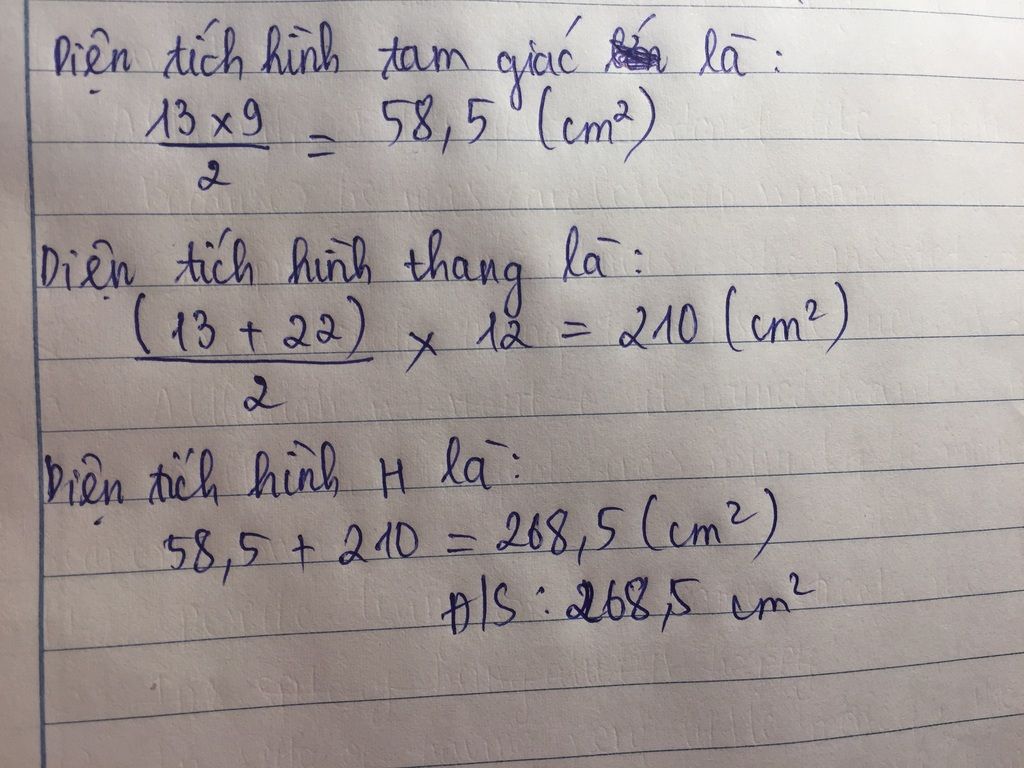 Diện tích hình tam giác là:
13 x 9 / 2 = 58,5 (cm²)
Diện tích hình thang là:
(13 + 22) / 2 x 12 = 210 (cm²)
Diện tích hình H là:
58,5 + 210 = 268,5 (cm²)
Đ/S : 268,5 cm²